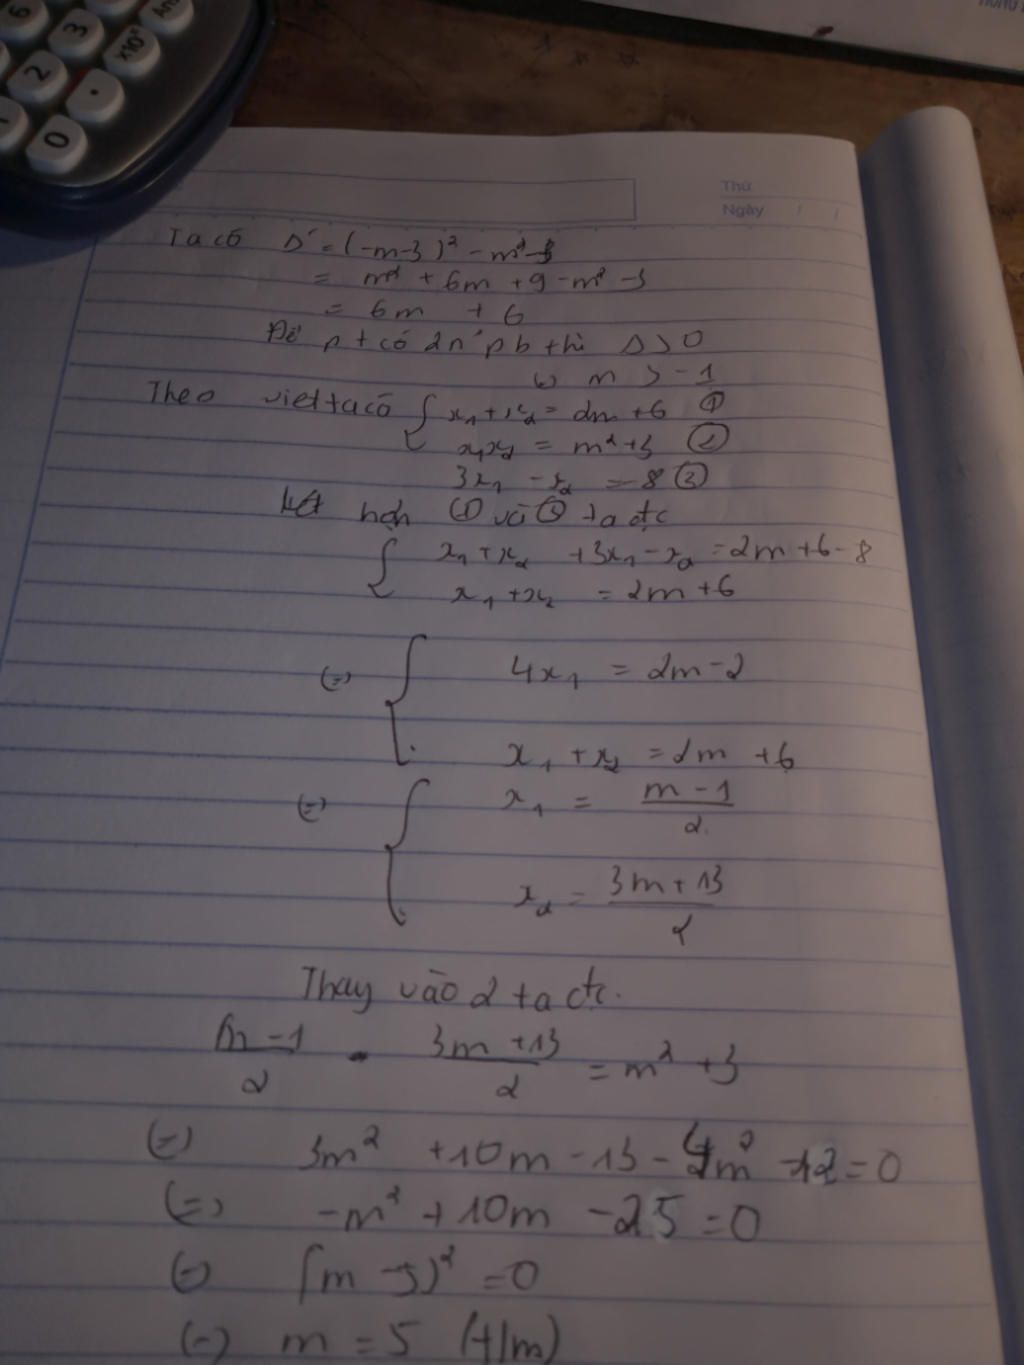 6 3 ×10ˣ An
2 ·
0
Thứ
Ngày / /
Ta có Δ' = (-m-3)² - m² - 3
= m² + 6m + 9 - m² - 3
= 6m + 6
Để pt có 2n pb thì Δ > 0
(=) m > -1
Theo viet ta có { x₁ + x₂ = 2m + 6 ①
x₁x₂ = m² + 3 ②
3x₁ - x₂ = -8 ③
Kết hợp ① và ③ ta đc
{ x₁ + x₂ + 3x₁ - x₂ = 2m + 6 - 8
x₁ + x₂ = 2m + 6
(=) { 4x₁ = 2m - 2
x₁ + x₂ = 2m + 6
(=) { x₁ = (m - 1)/2
x₂ = (3m + 13)/2
Thay vào 2 ta đc.
(m - 1)/2 · (3m + 13)/2 = m² + 3
(=) 3m² + 10m - 13 - 4m² - 12 = 0
(=) -m² + 10m - 25 = 0
(=) (m - 5)² = 0
(=) m = 5 (t/m)